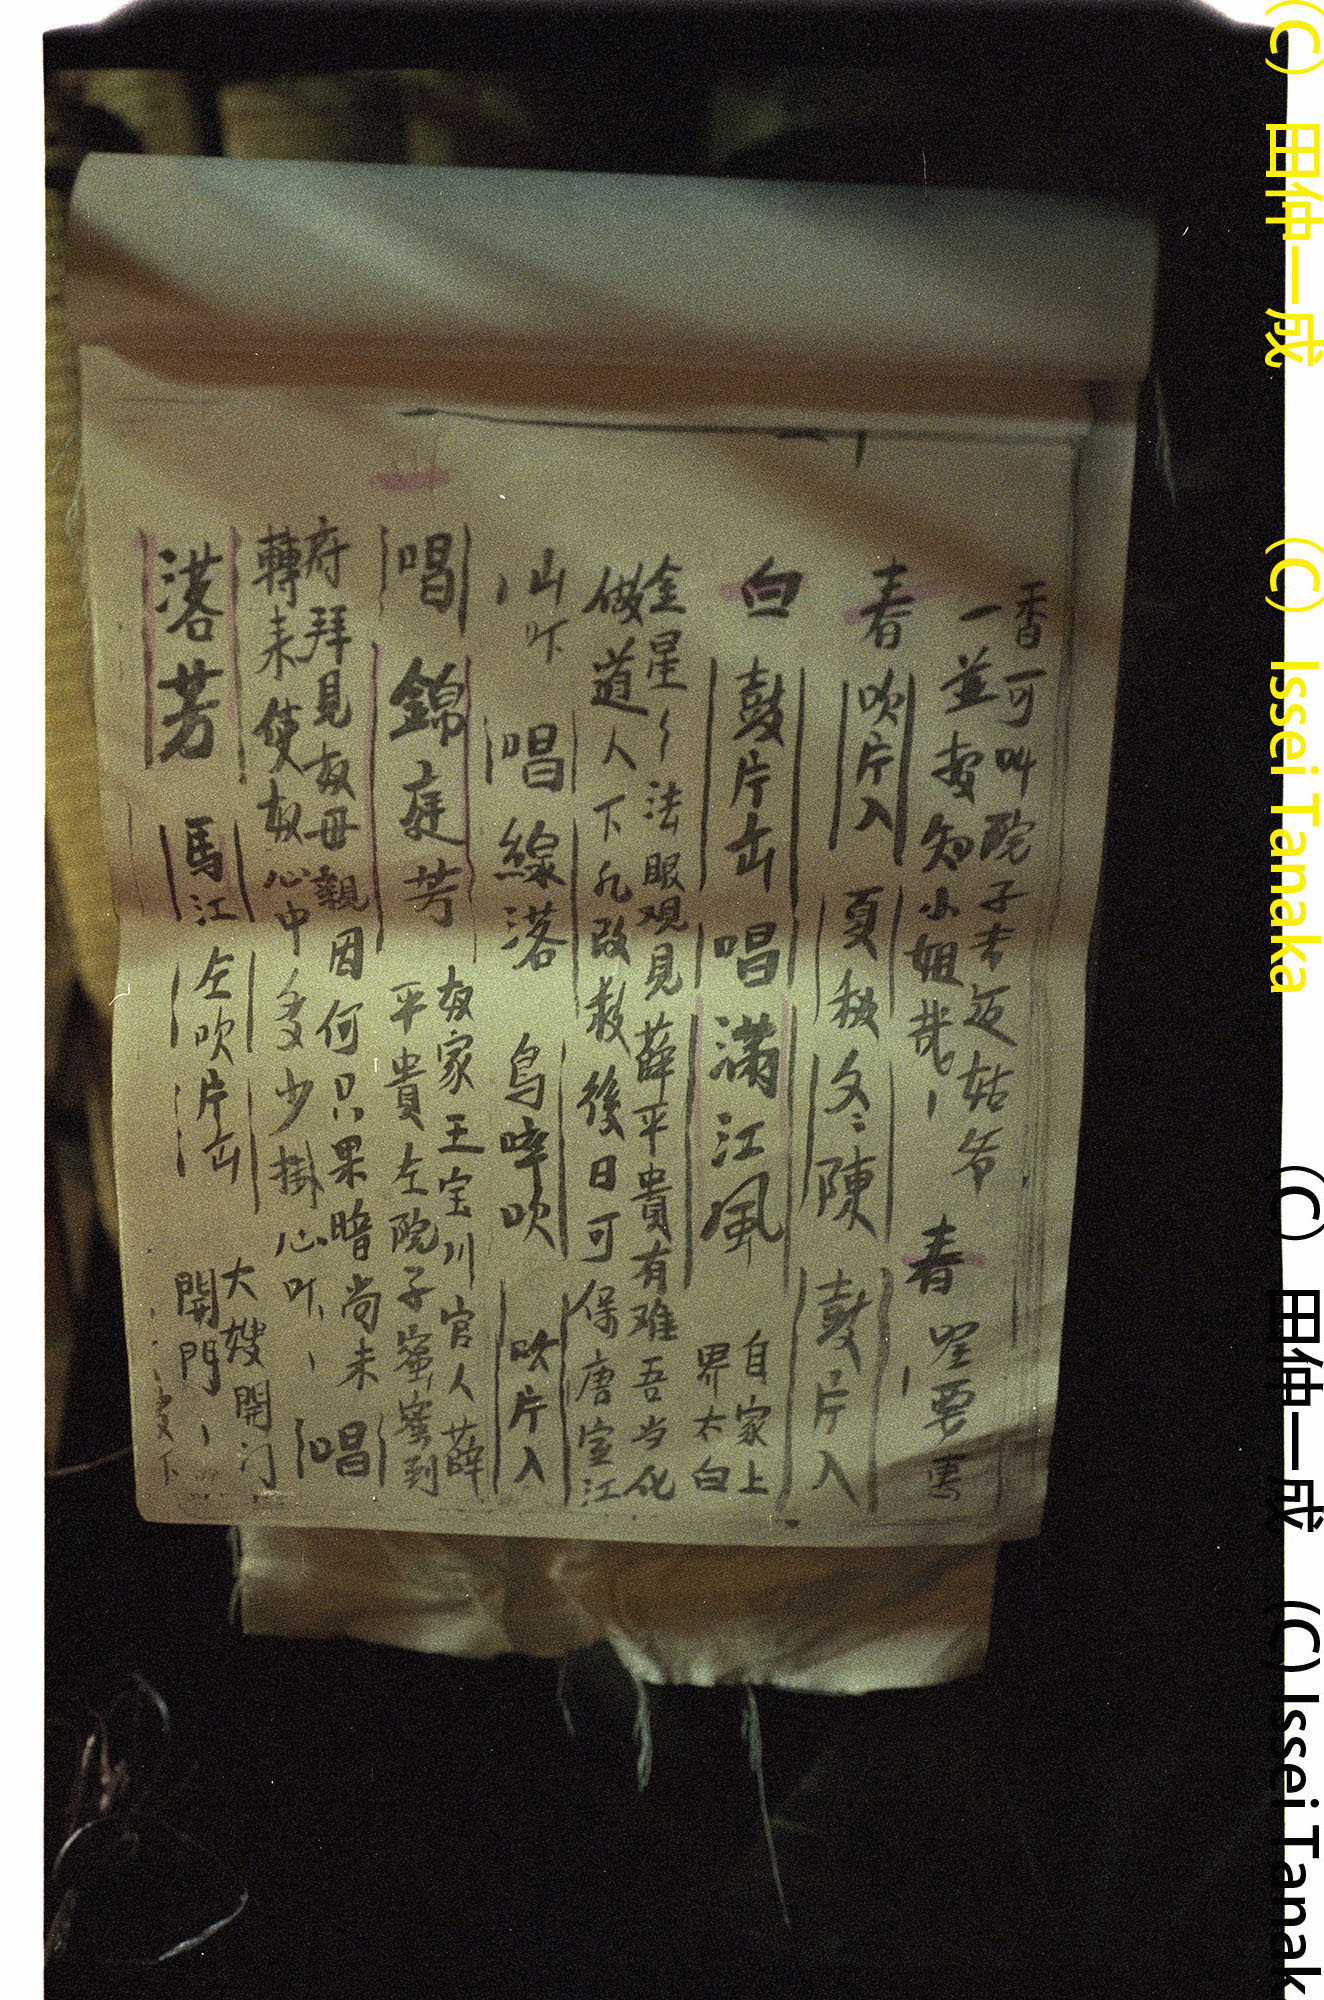 香可叫院子去返姑爷
一並安知小姐哉
春
春
吹片入
夏
秋
冬
陳
鼓片入
白
鼓片出
唱
满江風
自家上
界太白
金星 法眼观見薛平貴有难吾当化
做道人下凡改救後日可保唐室江
山吓
唱
線落
鳥啐吹
吹片入
唱
錦庭芳
奴家王宝川官人薛
平貴左院子蜜蜜到
府拜見奴母親因何只果暗尚未
轉来使奴心中多少掛心吓
唱
落芳
馬江
左吹片出
大嫂開门
開門
(C) 田仲一成 (C) Issei Tanaka
(C) 田仲一成 (C) Issei Tanak